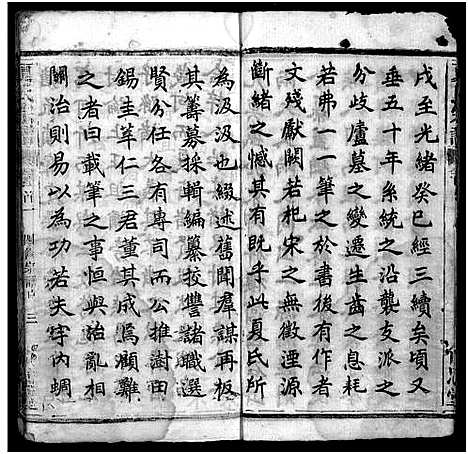 戌至光緒癸巳經三續矣頃又
垂五十年系統之沿襲支派之
分歧廬墓之變遷生齒之息耗
若弗一一筆之於書後有作者
文殘獻闕若杞宋之無徵湮源
斷緒之憾其有既乎此夏氏所
為汲汲也綴述舊聞羣謀再板
其籌募採輯編纂校讐諸職選
賢分任各有專司而公推澍田
錫圭莘仁三君董其成焉顧難
之者曰載筆之事恒與治亂相
關治則易以為功若夫宇內蜩